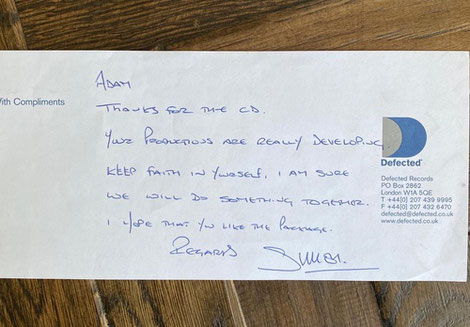 With Compliments
ADAM
THANKS FOR THE CD.
YOUR PRODUCTIONS ARE REALLY DEVELOPING
KEEP FAITH IN YOURSELF. I AM SURE
WE WILL DO SOMETHING TOGETHER.
I HOPE THAT YOU LIKE THE PACKAGE.
REGARDS
Defected
Defected Records
PO Box 2862
London W1A 5QE
T +44[0] 207 439 9995
F +44[0] 207 432 6470
defected@defected.co.uk
www.defected.co.uk